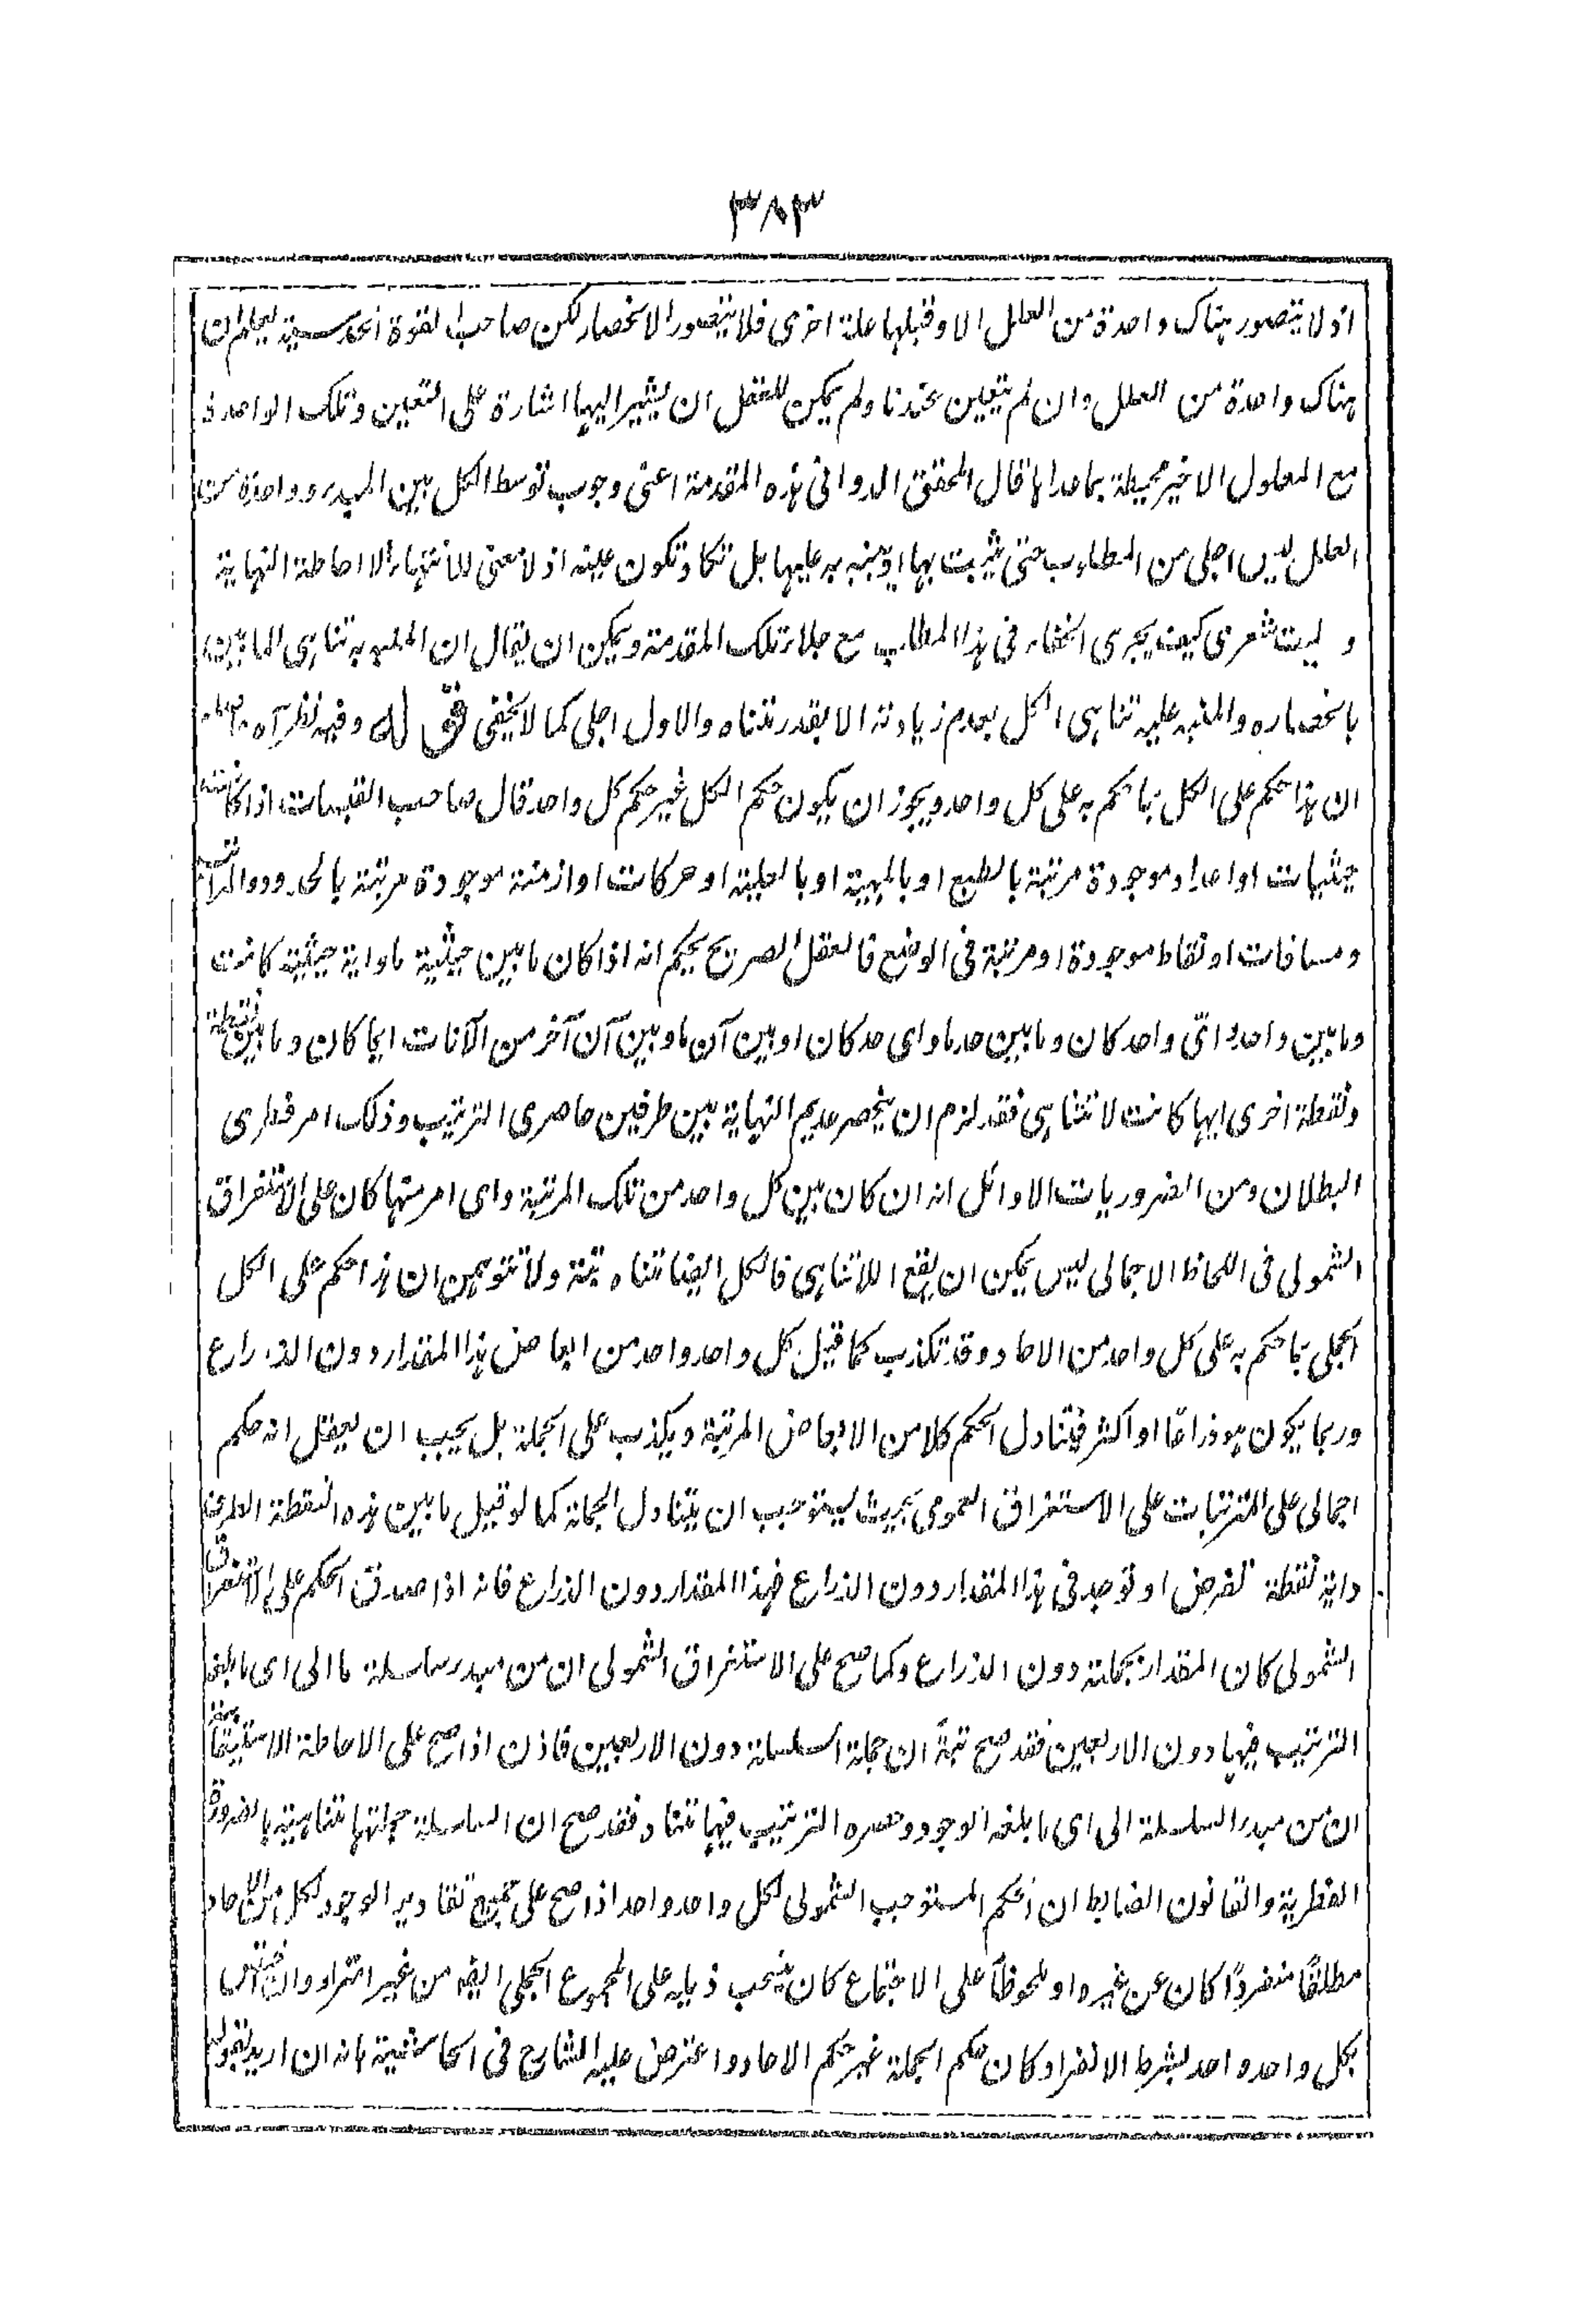 ٣٨٣
اذ لا يتصور هناك واحدة من العلل الا وقبلها علة اخرى فلا يتصور الانحصار لكن صاحب القوة الحدسية ليعلم ان
هناك واحدة من العلل وان لم يتعين عندنا ولم يمكن للعقل ان يشير اليها اشارة على التعين وتلك الواحدة
مع المعلول الاخير محيطة بما عداها قال المحقق الدوانى هذه المقدمة اعنى وجوب توسط الكل بين المبدء وواحدة من
العلل ليس اجلى من المطلوب حتى يثبت بها او ينبه به عليها بل تكاد تكون عينه اذ لا معنى للانتهاء الا احاطة النهاية
و ليت شعرى كيف يجرى الخفاء فى هذا المطلب مع جلاء تلك المقدمة ويمكن ان يقال ان المنبه به تناهى المابين
بانحصاره والمنبه عليه تناهى الكل بعدم زيادته الا بقدر متناه والاول اجلى كما لا يخفى قوله وفيه نظر آه
ان هذا حكم على الكل بما حكم به على كل واحد ويجوز ان يكون حكم الكل غير حكم كل واحد قال صاحب القبسات اذا كانت
حيثيات او اعداد موجودة مرتبة بالطبع او بالمهية او بالعلية او حركات او ازمنة موجودة مرتبة بالحدود والمراتب
ومسافات او نقاط موجودة او مرتبة فى الوضع فالعقل الصريح يحكم انه اذا كان ما بين حيثية ما واية حيثية كانت
وما بين واحد واى واحد كان وما بين حد ما واى حد كان او بين آن ما وبين آن آخر من الآنات ايا كان وما بين نقطة
ونقطة اخرى ايها كانت لا تتناهى فقد لزم ان ينحصر عديم النهاية بين طرفين حاصرى الترتيب وذلك امر فطرى
البطلان ومن الضروريات الاوائل انه ان كان بين كل واحد من تلك المرتبة واى امر منها كان على الاستغراق
الشمولى فى اللحاظ الاجمالى ليس يمكن ان يقع اللاتناهى فالكل ايضا متناه البتة ولا تتوهمن ان هذا حكم على الكل
الجملى بما حكم به على كل واحد من الاحاد وقد تكذب كما قيل كل واحد واحد من ابعاض هذا المقدار دون الذراع
وربما يكون هو ذراعًا او اكثر فيتناول الحكم كلا من الابعاض المرتبة ويكذب على الجملة بل يجب ان يعقل انه حكم
اجمالى على المترتبات على الاستغراق العمومى بحيث يستوجب ان يتناول الجملة كما لو قيل ما بين هذه النقطة الطرف
واية نقطة تفرض او توجد فى هذا المقدار دون الذراع فهذا المقدار دون الذراع فانه اذا صدق الحكم على الاستغراق
الشمولى كان المقدار بجملته دون الذراع وكما صح على الاستغراق الشمولى ان من مبدء سلسلة ما الى اى ما بلغه
الترتيب فيها دون الاربعين فقد صح بتة ان جملة السلسلة دون الاربعين فاذن اذا صح على الاحاطة الاستيعابية
ان من مبدء السلسلة الى اى ما بلغه الوجود وحصره الترتيب فيها متناه فقد صح ان السلسلة بجملتها متناهية بالضرورة
الفطرية والقانون الضابط ان الحكم المستوجب الشمولى لكل واحد واحد اذا صح على جميع تقادير الوجود لكل من الاحاد
مطلقًا منفردًا كان عن غيره او ملحوظًا على الاجتماع كان ينسحب ذيله على المجموع الجملى ايضا من غير امتراء وان اختص
بكل واحد واحد بشرط الانفراد كان حكم الجملة غير حكم الاحاد واعترض عليه الشارح فى الحاشية بانه ان اريد بقوله